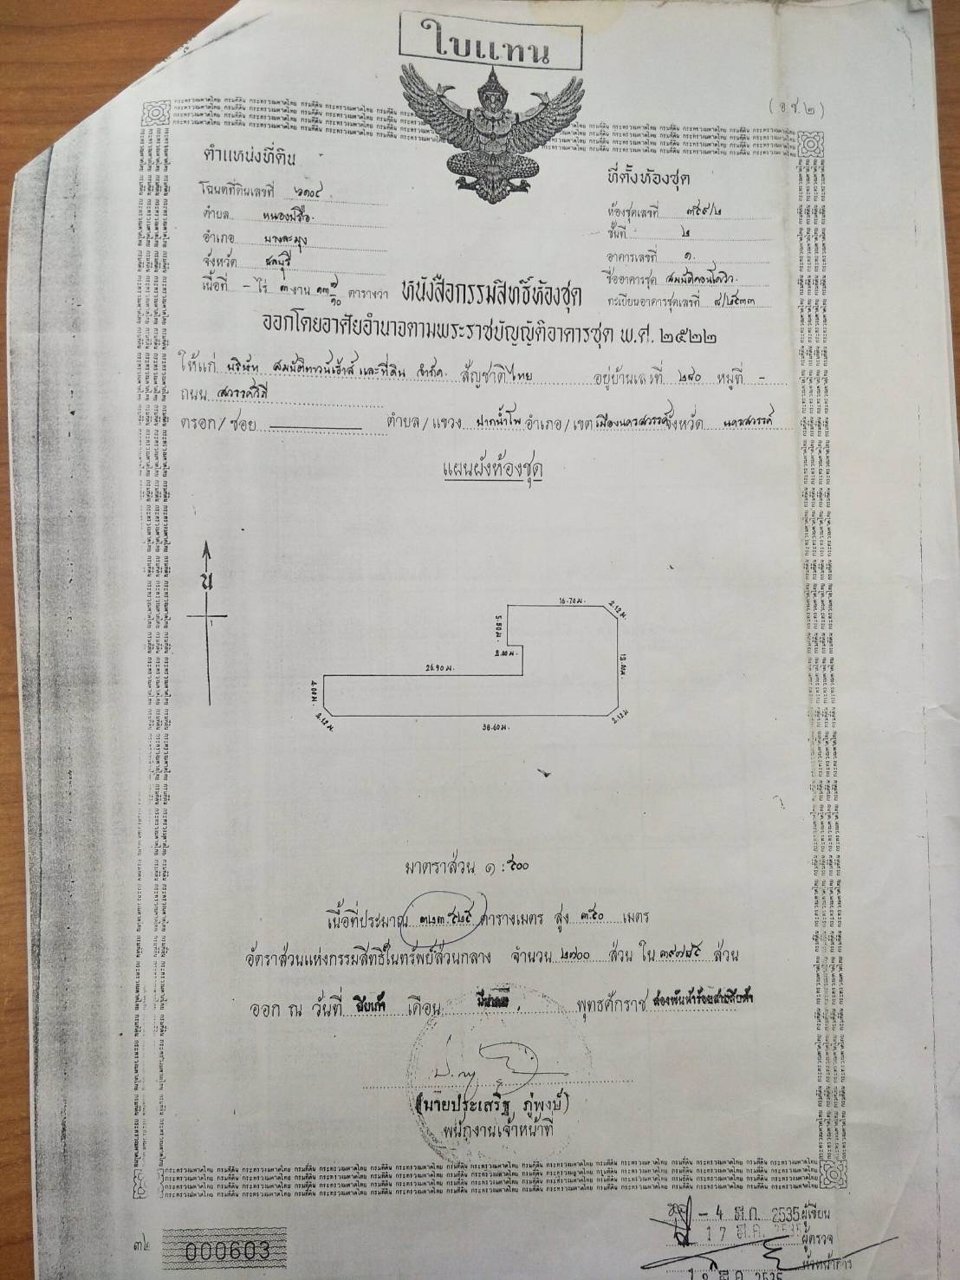 ใบแทน
(อ.ช.๒)
ตำแหน่งที่ดิน
โฉนดที่ดินเลขที่
ตำบล หนองปรือ
อำเภอ บางละมุง
จังหวัด ชลบุรี
เนื้อที่ - ไร่ ๓ งาน ตารางวา
ที่ตั้งห้องชุด
ห้องชุดเลขที่ ๓๕๙/๒
ชั้นที่ ๒
อาคารเลขที่ ๑
ชื่ออาคารชุด สมบัติคอนโดวิว
ทะเบียนอาคารชุดเลขที่ ๘/๒๕๓๓
หนังสือกรรมสิทธิ์ห้องชุด
ออกโดยอาศัยอำนาจตามพระราชบัญญัติอาคารชุด พ.ศ. ๒๕๒๒
ให้แก่ บริษัท สมบัติทาวน์เฮ้าส์ และที่ดิน จำกัด สัญชาติ ไทย อยู่บ้านเลขที่ ๒๘๐ หมู่ที่ -
ถนน สวรรค์วิถี
ตรอก/ซอย ตำบล/แขวง ปากน้ำโพ อำเภอ/เขต เมืองนครสวรรค์ จังหวัด นครสวรรค์
แผนผังห้องชุด
น
16.70 ม.
2.12 ม.
5.80 ม.
2.00 ม.
26.90 ม.
4.00 ม.
2.12 ม.
38.60 ม.
2.12 ม.
มาตราส่วน ๑ : ๕๐๐
เนื้อที่ประมาณ ๓๒๓.๕๒๕ ตารางเมตร สูง ๓.๕๐ เมตร
อัตราส่วนแห่งกรรมสิทธิ์ในทรัพย์ส่วนกลาง จำนวน ๒๗๐๐ ส่วน ใน ๓๙๗๕๕ ส่วน
ออก ณ วันที่ สิบเก้า เดือน มีนาคม พุทธศักราช สองพันห้าร้อยสามสิบห้า
(นายประเสริฐ ภู่พงษ์)
พนักงานเจ้าหน้าที่
๓๒
000603
- 4 ส.ค. 2535 ผู้เขียน
17 ส.ค. 2535 ผู้ตรวจ
หัวหน้าการ